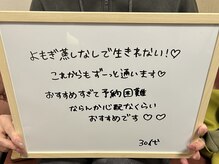 よもぎ蒸しなしで生きれない!♡
これからもずーっと通います♡
おすすめすぎて予約困難
ならんか心配なくらい
おすすめです♡♡
30代